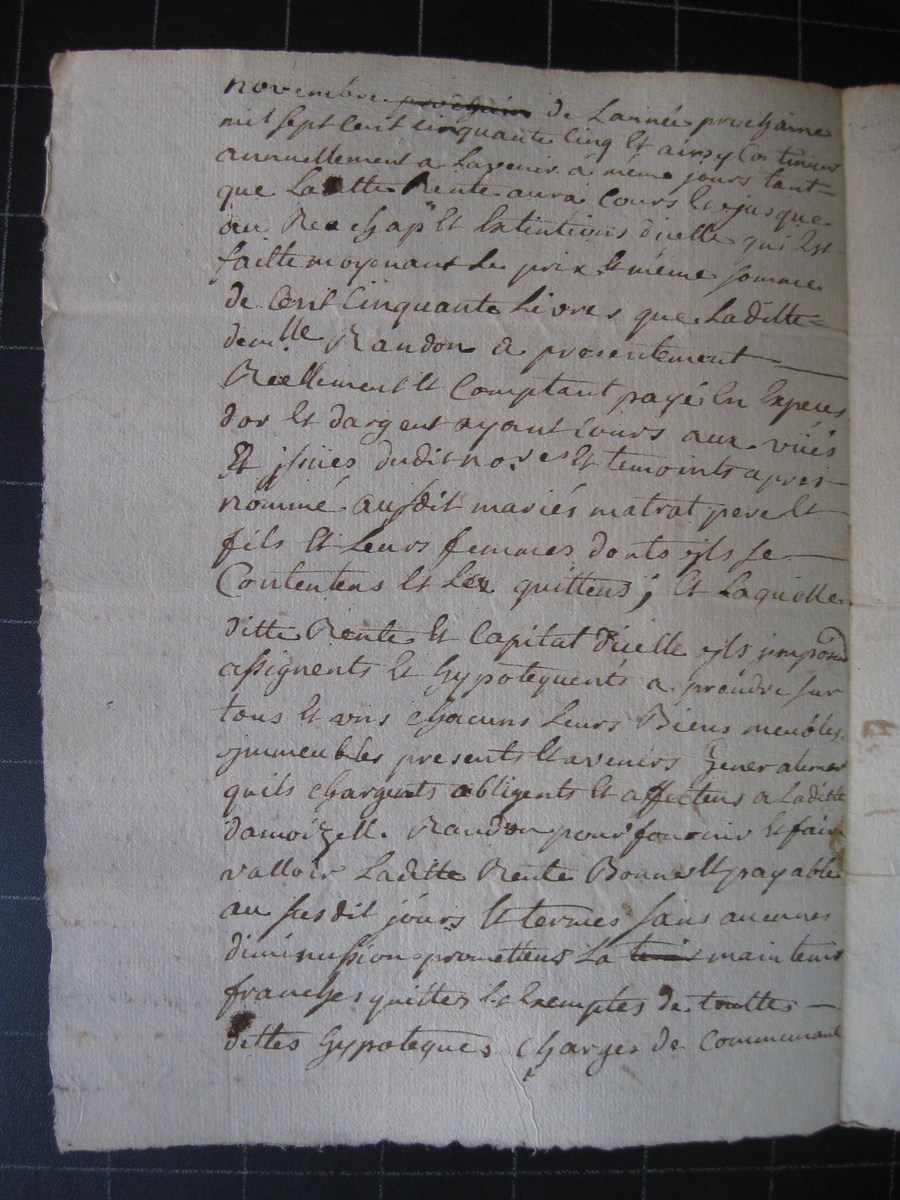 novembre prochain de Lannée prochaine
mil sept Cent Cinquante Cinq Et ainsy Continuer
annuellement a Lavenir a même jours tant
que Laditte Rente aura Cours Et jusque
au Reachapt Et Extintions dicelle qui Est
faitte moyenant Le prix Et même Somme
de Cent Cinquante Livres que Laditte
demlle Randon a presentement
Reellement Et Comptant payé En Especes
dor Et dargent ayant Cours aux vües
Et jssües dudit nore Et temoints apres
nommé ausdit mariés matrat pere Et
fils Et Leurs femmes donts jls se
Contentens Et Len quittens; Et Laquelle
ditte Rente Et Capital dicelle jls jmposent
assignents Et hypotequents a prendre sur
tous Et uns chacuns Leurs Biens meubles
jmmeubles presents Et avenirs generalement
quils chargents obligents Et affectens a Laditte
damoizelle Randon pour fournir Et faire
valloir Laditte Rente Bonne Et payable
au susdit jours Et termes sans aucunes
diminussion promettens La maintenir
franches quittes Et Exemptes de touttes
dettes hypoteques charges de Communauté